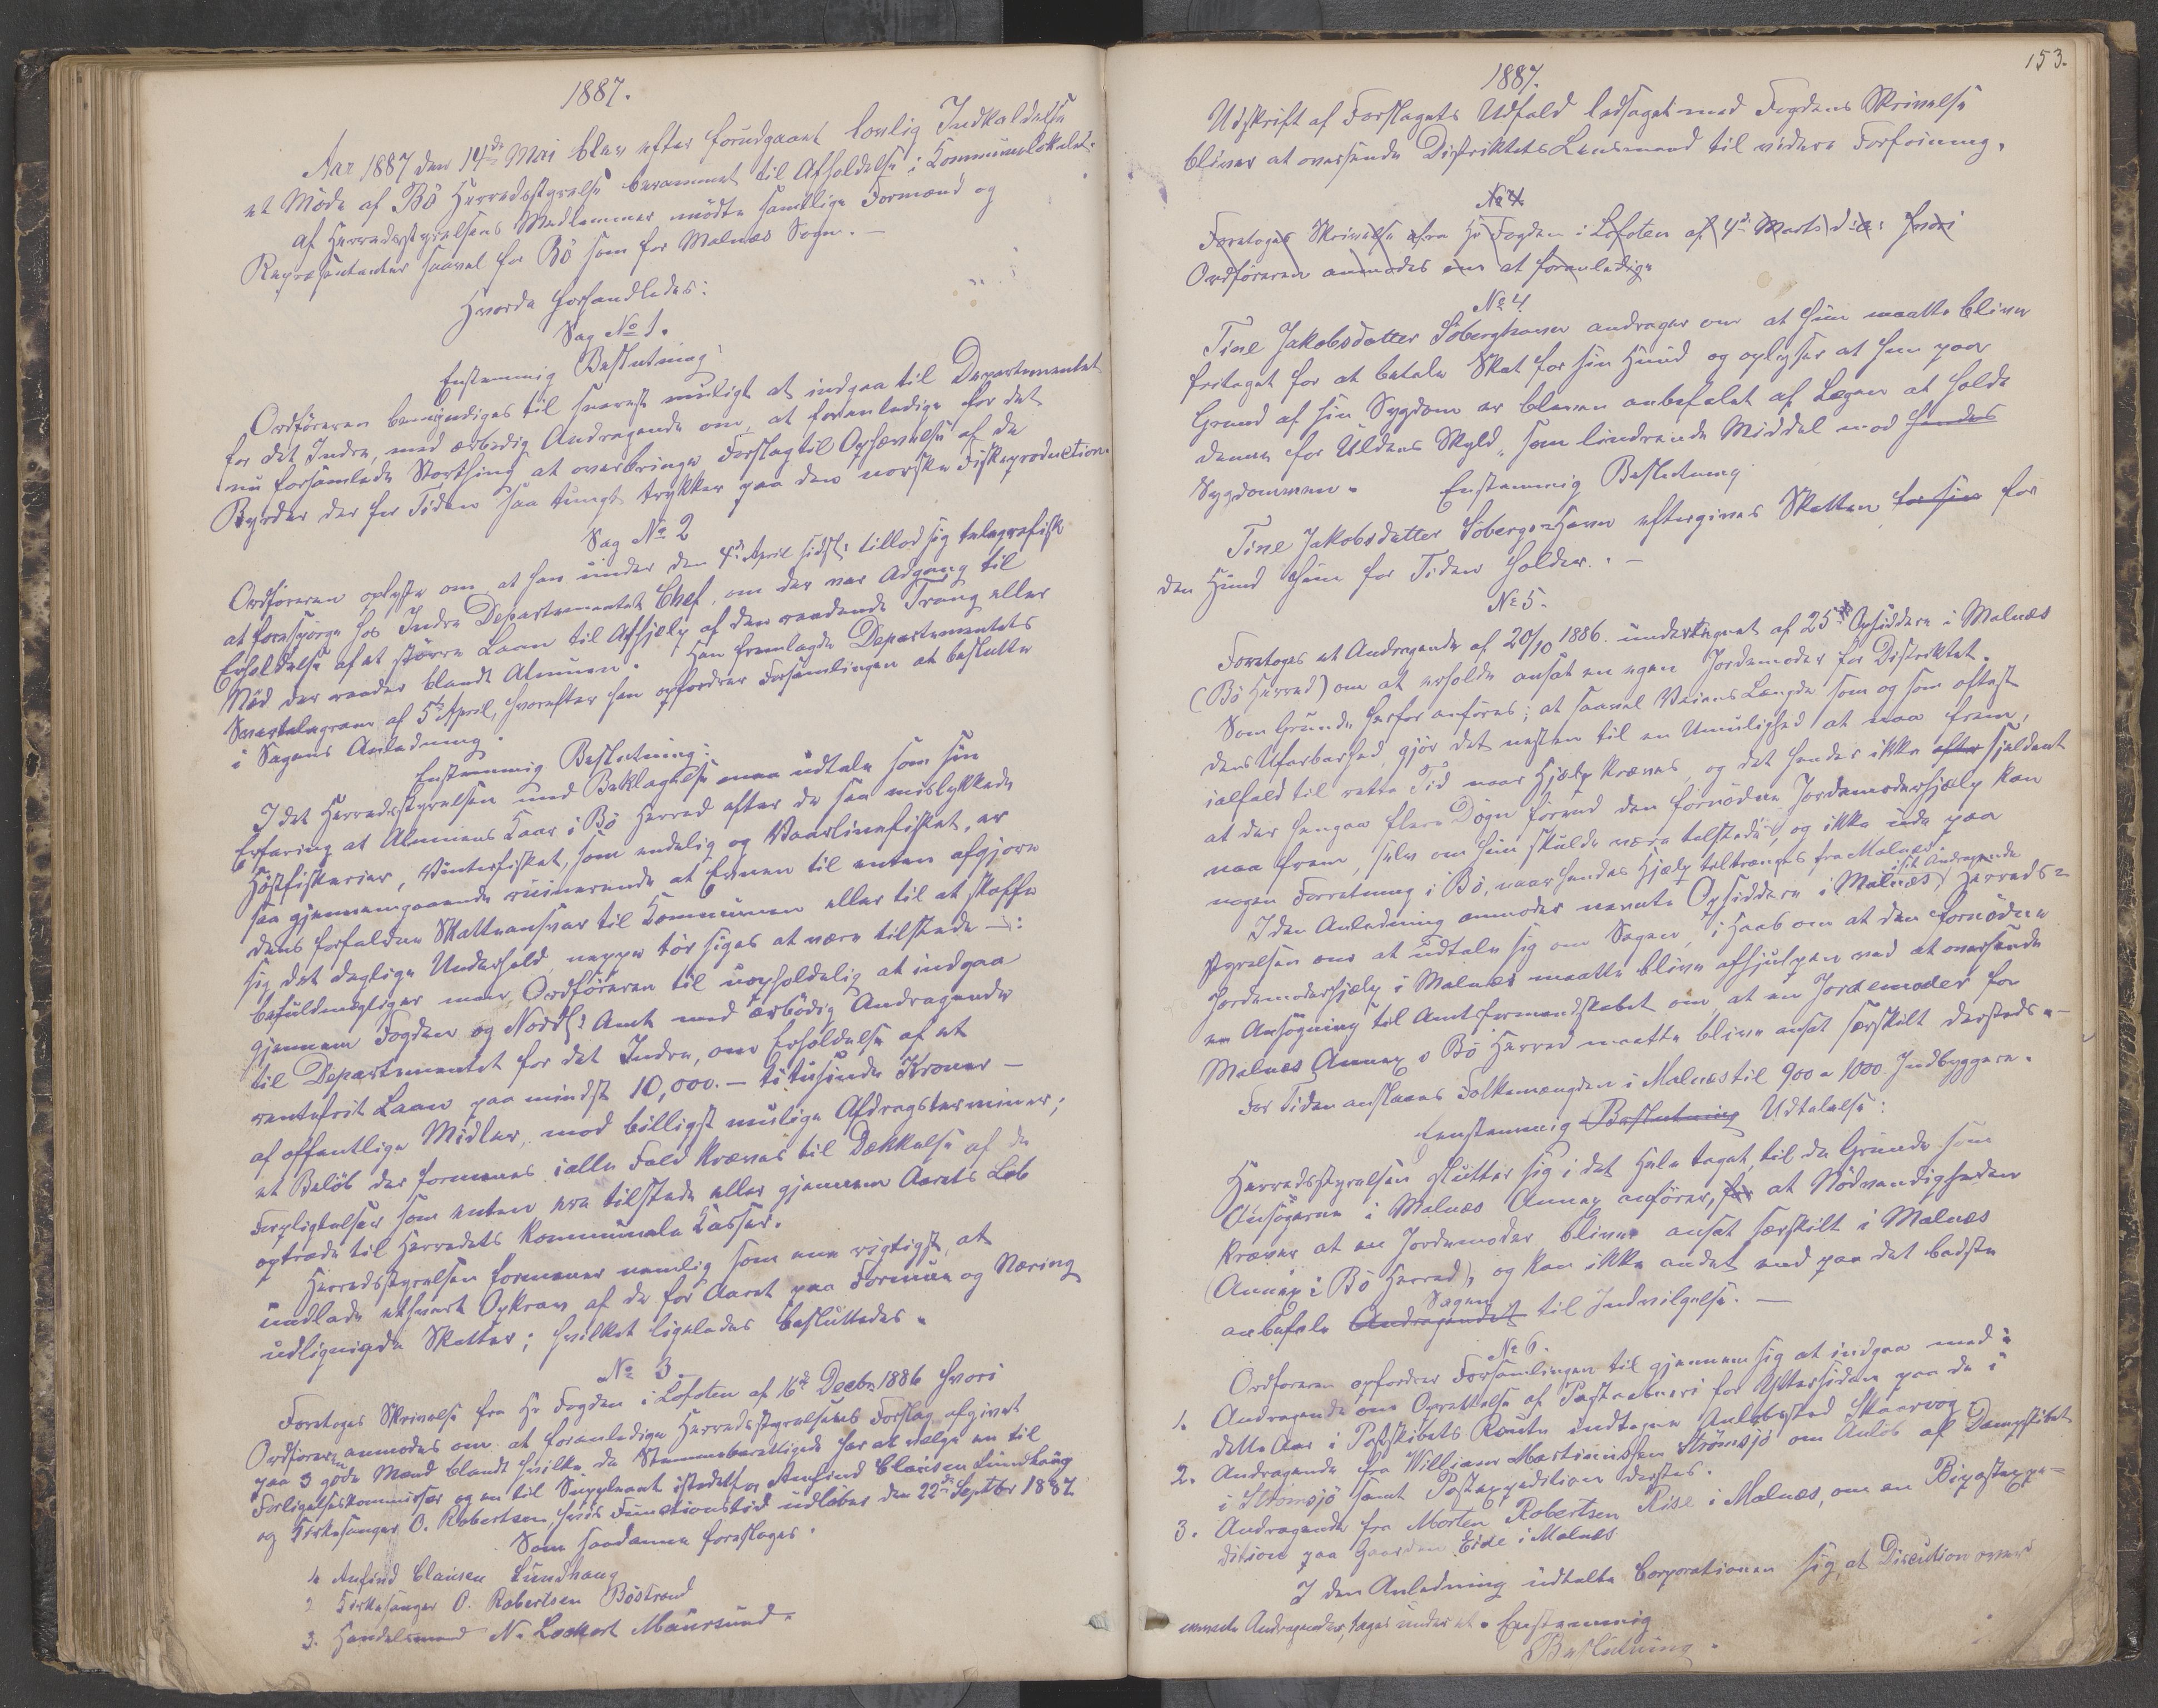 1887.
Aar 1887 den 14de Mai blev efter forudgaaet lovlig Indkaldelse
et Møde af Bö Herredsstyrelse berammet til Afholdelse i Kommunelokalet.
Af Herredsstyrelsens Medlemmer mödte samtlige Formænd og
Repræsentanter saavel for Bö som for Malnæs Sogn. —
Hvorda forhandledes:
Sag No 1.
Enstemmig Beslutning:
Ordföreren bemyndiges til snarest muligt at indgaa til Departementet
for det Indre, med ærbødig Andragende om, at foranledige for det
nu forsamlede Storthing at overbringe Forslag til Ophævelse af de
Byrder der for Tiden saa tungt trykker paa den norske Fiskeproduction
Sag No 2
Ordföreren oplyste om at han under den 4de April sidstl. tillod sig telegrafisk
at forespörge hos Indre Departementets Chef, om der var Adgang til
Erholdelse af et större Laan til Afhjælp af den raadende Trang eller
Nöd der raader blandt Almuen. Han fremlagde Departementets
Svartelegram af 5te April, hvorefter han opfordrer Forsamlingen at beslutte
i Sagens Anledning.
Enstemmig Beslutning:
I det Herredsstyrelsen med Beklagelse maa udtale som sin
Erfaring at Almuens Kaar i Bö Herred efter de saa mislykkede
Höstfiskerier, Vinterfisket, som endelig og Vaarlinefisket, er
saa gjennemgaaende ruinerende at Evnen til enten afgjøre
dens forfaldne Skatteansvar til Kommunen eller til at skaffe
sig det daglige Underhold neppe tör siges at være tilstede —:
befuldmægtiger man Ordföreren til uopholdelig at indgaa
gjennem Fogden og Nordl. Amt med ærbödig Andragende
til Departementet for det Indre, om Erholdelse af et
rentefrit Laan paa mindst 10,000. — titusinde Kroner —
af offentlige Midler, mod billigst mulige Afdragsterminer;
et Belöb der formenes ialle Fald kræves til Dækkelse af de
Forpligtelser som enten ere tilstede eller gjennem Aarets Löb
optræde til Herredets kommunale Kasser.
Herredsstyrelsen formener nemlig som ene rigtigst, at
undlade ethvert Opkrav af de for Aaret paa Formue og Næring
udlignigede Skatter; hvilket ligeledes besluttedes.
No 3.
Foretoges Skrivelse fra Hr Fogden i Lofoten af 16de Decbr 1886 hvori
Ordföreren anmodes om at foranledige Herredsstyrelsens Forslag afgivet
paa 3 gode Mænd blandt hvilke de Stemmeberettigede har at vælge en til
Forligelseskommissær og en til Suppleant istedetfor Anfind Clausen Lundhaug
og Kirkesanger O. Robertsen, hvis Functionstid udlöber den 22de Septbr 1887.
Som saadanne foreslages.
1. Anfind Clausen Lundhaug
2 Kirkesanger O. Robertsen Böstrand
3. Handelsmand N. Lockert Maursund.
153.
1887.
Udskrift af Forslagets Udfald ledsaget med Fogdens Skrivelse
bliver at oversende Distriktets Lensmand til videre Forföining.
No 4
Foretoges Skrivelse fra Hr Fogden i Lofoten af 4de Marts d. a. hvori
Ordföreren anmodes om at foranledige
No 4.
Tine Jakobsdatter Söberghavn andrager om at hun maatte blive
fritaget for at betale Skat for sin Hund og oplyser at hun paa
Grund af sin Sygdom er bleven anbefalet af Lægen at holde
denne for Uldens Skyld, som lindrende Middel mod hendes
Sygdommen. Enstemmig Beslutning
Tine Jakobsdatter Söberg-Havn eftergives Skatten for sin for
den Hund hun for Tiden holder. —
No 5.
Foretoges et Andragende af 20/10 1886. undertegnet af 25 Opsiddere i Malnæs
(Bö Herred) om at erholde ansat en egen Jordemoder for Distriktet.
Som Grunde herfor anföres; at saavel Veiens Længde som og som oftest
dens Ufarbarhed, gjör det næsten til en Umulighed at naa frem,
ialfald til rette Tid naar Hjælp kræves, og det hænder ikke after sjeldent
at der hengaa flere Dögn förend den fornödne Jordemoderhjælp kan
naa frem, selv om hun skulde være tilstede, og ikke ude paa
nogen Forretning i Bö, naar hendes Hjælp tiltrænges fra Malnæs.
I den Anledning anmoder nævnte Opsiddere i Malnæs i sit Andragende Herreds=
styrelsen om at udtale sig om Sagen, i Haab om at den fornödne
Jordemoderhjælp i Malnæs maatte blive afhjulpen ved at oversende
en Ansögning til Amtsformandskabet om, at en Jordemoder for
Malnæs Annex i Bö Herred maatte blive ansat særskilt dersteds. —
For Tiden anslaaes Folkemængden i Malnæs til 900 a 1000 Indbyggere.
Eenstemmig Beslutning Udtalelse:
Herredsstyrelsen slutter sig i det Hele taget, til de Grunde som
Ansögerne i Malnæs Annex anförer, for at Nödvendigheden
kræver at en Jordemoder bliver ansat særskilt i Malnæs
(Annex i Bö Herred), og kan ikke andet end paa det bedste
anbefale Andragendet Sagen til Indvilgelse. —
No 6.
Ordföreren opfordrer Forsamlingen til gjennem sig at indgaa med:
1. Andragende om Oprettelse af Postaabneri for Yttersiden paa de i
dette Aar i Postskibets Route indtagne Anlöbssted Skaarvog.
2. Andragende fra William Martinussen Strömsjö om Anlöb af Dampskibet
i Strömsjö samt Postexpedition dersteds.
3. Andragende fra Morten Robertsen Rise i Malnæs, om en Bipostexpe=
dition paa Gaarden Eide i Malnæs
I den Anledning udtalte Corporationen sig, at Discution over
nævnte Andragender, tages under et. Enstemmig
Beslutning.